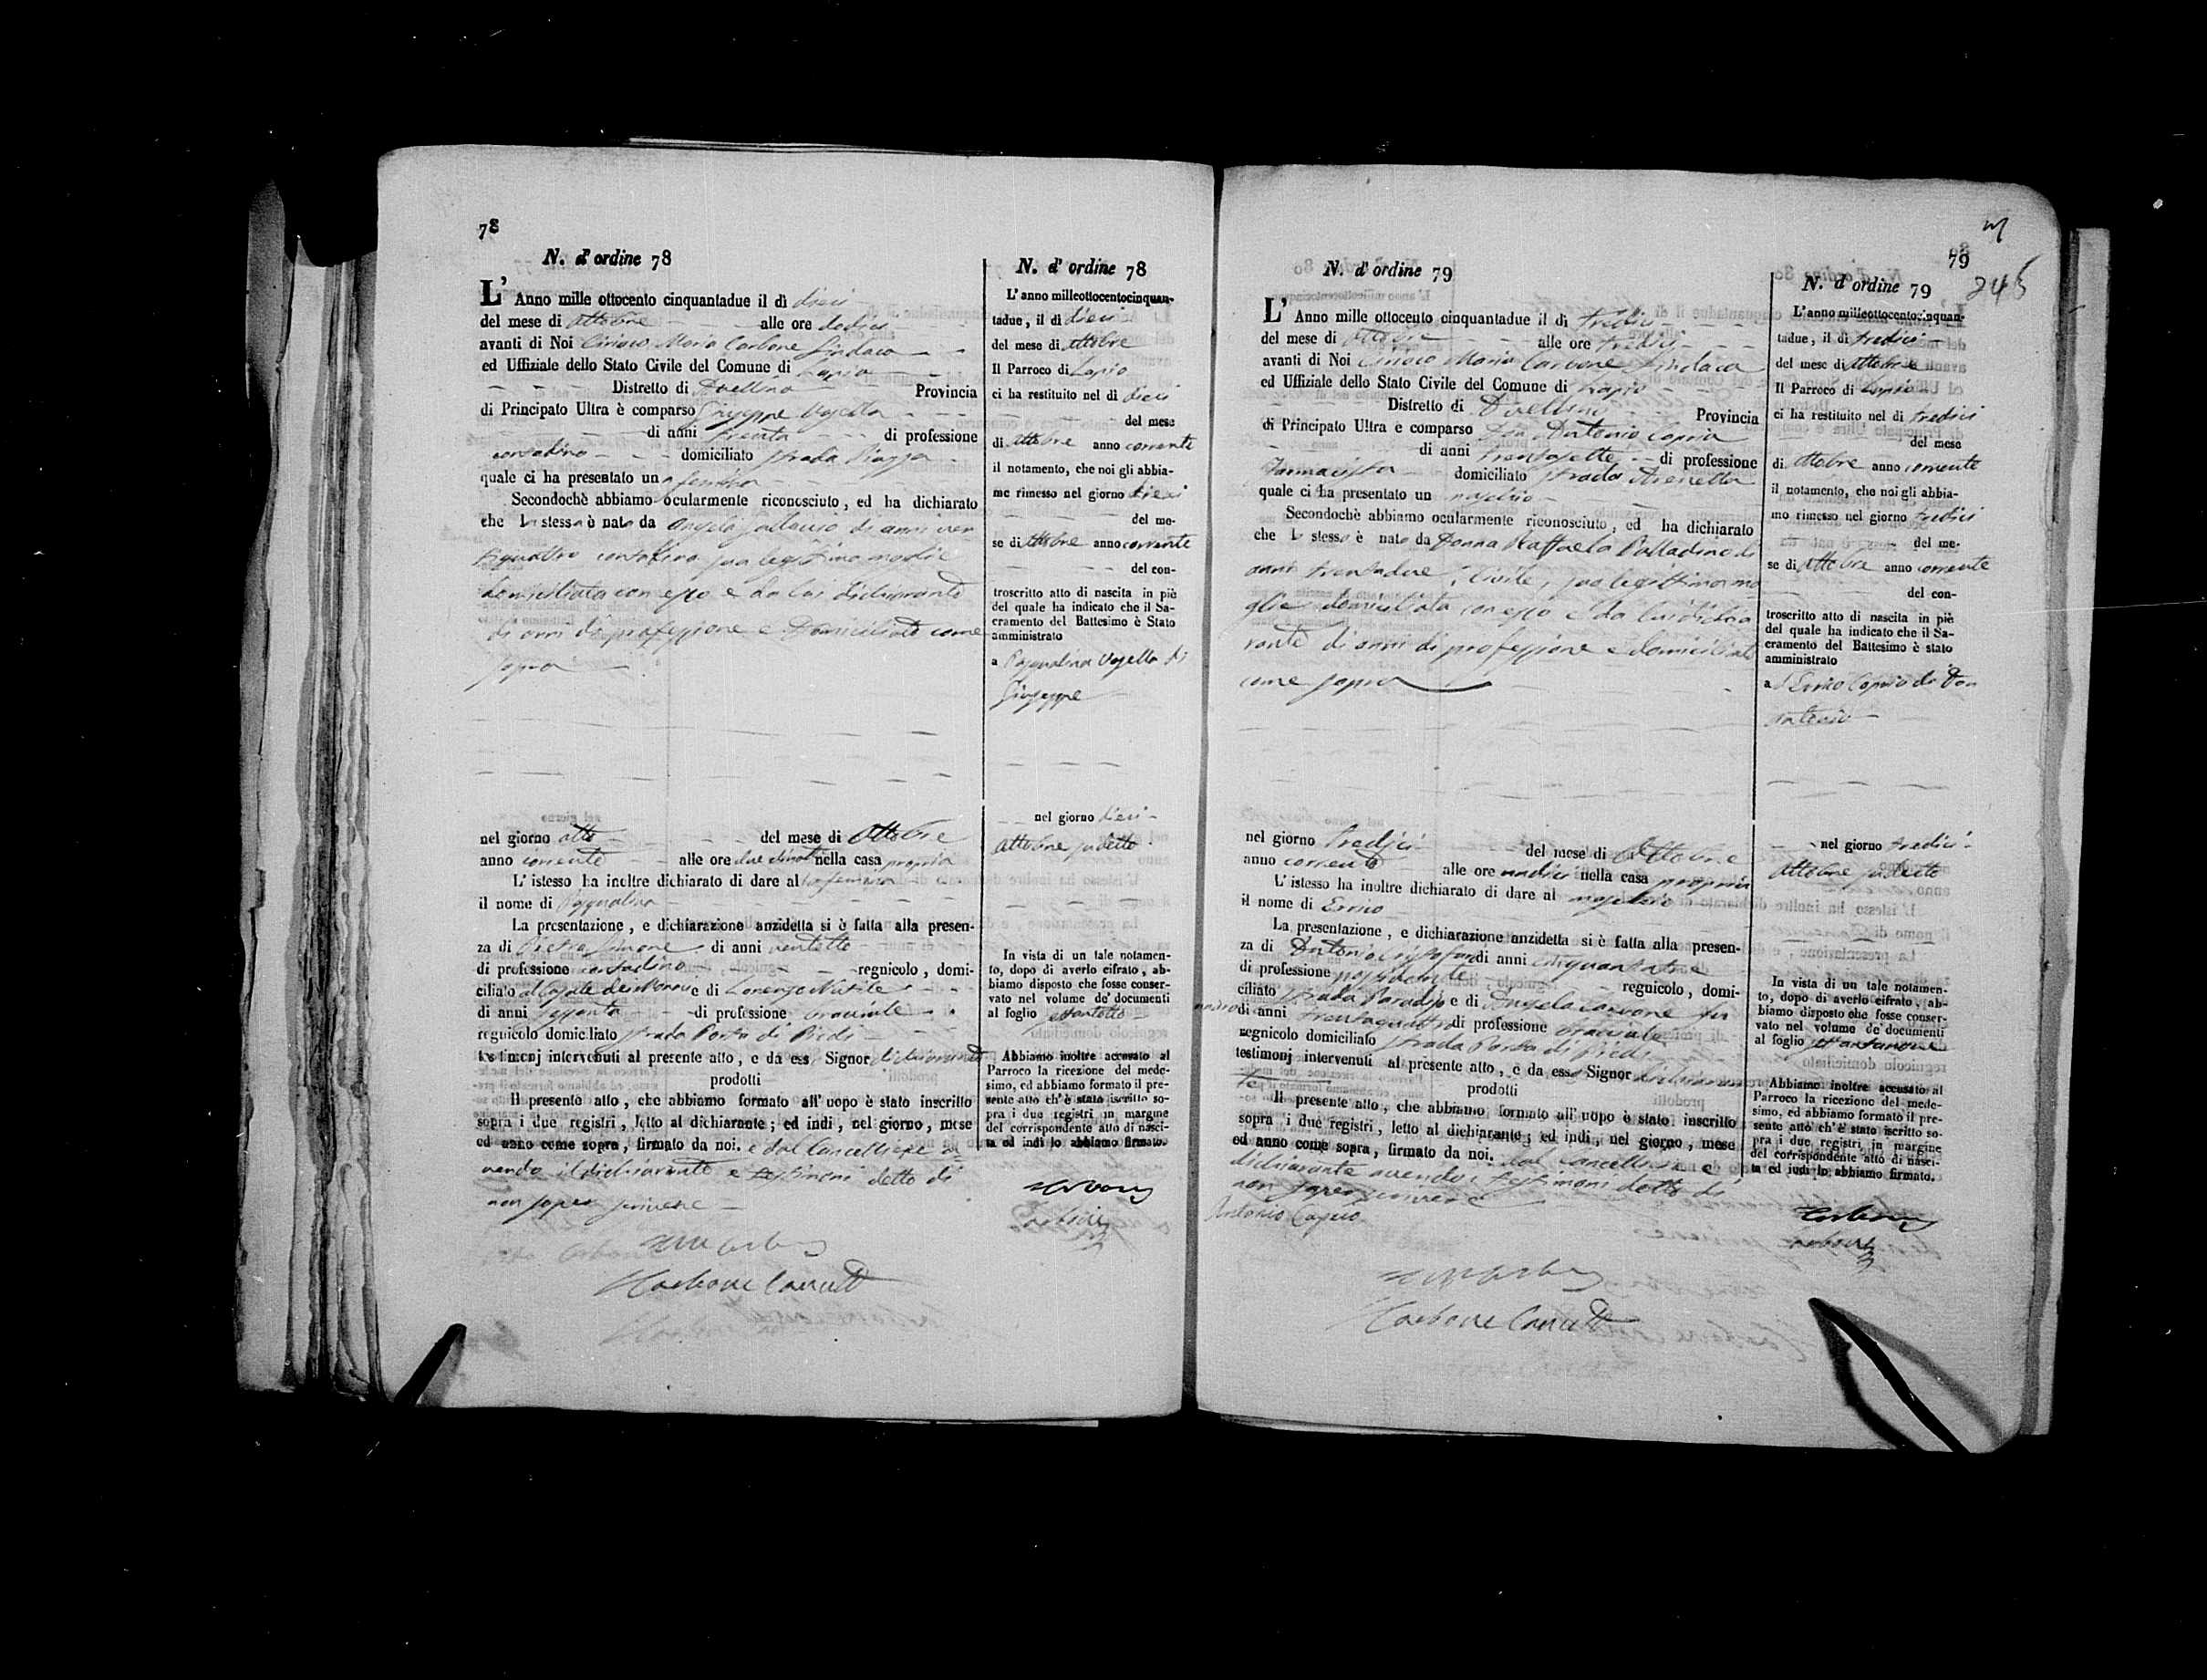 78
N. d' ordine 78
L' Anno mille ottocento cinquantadue il dì dieci
del mese di Ottobre alle ore dodici
avanti di Noi Ciriaco Maria Carbone Sindaco
ed Uffiziale dello Stato Civile del Comune di Lapio
Distretto di Avellino Provincia
di Principato Ultra è comparso Giuseppe
di anni trenta di professione
contadino domiciliato strada Piazza
quale ci ha presentato una femina
Secondochè abbiamo ocularmente riconosciuto, ed ha dichiarato
che la stessa è nata da Angela di anni ven
tiquattro contadina sua legittima moglie
domiciliata con esso e da lui dichiarante
di anni di professione e domiciliato come
sopra
nel giorno otto del mese di Ottobre
anno corrente alle ore due nella casa propria
L' istesso ha inoltre dichiarato di dare al la femina
il nome di Pasqualina
La presentazione, e dichiarazione anzidetta si è fatta alla presen-
za di di anni ventotto
di professione contadino regnicolo, domi-
ciliato al Casale e di Lorenzo
di anni sessanta di professione
regnicolo domiciliato strada Porta di Piedi
testimonj intervenuti al presente atto, e da esso Signor dichiarante
prodotti
Il presente atto, che abbiamo formato all' uopo è stato inscritto
sopra i due registri, letto al dichiarante; ed indi, nel giorno, mese
ed anno come sopra, firmato da noi. e dal Cancelliere a
vendo il dichiarante e testimoni detto di
non saper scrivere
Carbone
N. d' ordine 78
L' anno milleottocentocinquan-
tadue, il di dieci
del mese di Ottobre
Il Parroco di Lapio
ci ha restituito nel dì dieci
del mese
di Ottobre anno corrente
il notamento, che noi gli abbia-
mo rimesso nel giorno dieci
del me-
se di Ottobre anno corrente
del con-
troscritto atto di nascita in piè
del quale ha indicato che il Sa-
cramento del Battesimo è Stato
amministrato
a Pasqualina di
Giuseppe
nel giorno dieci
Ottobre sudetto
In vista di un tale notamen-
to, dopo di averlo cifrato, ab-
biamo disposto che fosse conser-
vato nel volume de' documenti
al foglio settantotto
Abbiamo inoltre accusato al
Parroco la ricezione del mede-
simo, ed abbiamo formato il pre-
sente atto ch' è stato iscritto so-
pra i due registri in margine
del corrispondente atto di nasci-
ta ed indi lo abbiamo firmato.
Carbone
79
245
N. d' ordine 79
L' Anno mille ottocento cinquantadue il di tredici
del mese di Ottobre alle ore tredici
avanti di Noi Ciriaco Maria Carbone Sindaco
ed Uffiziale dello Stato Civile del Comune di Lapio
Distretto di Avellino Provincia
di Principato Ultra e comparso Don Antonio Caprio
di anni trentasette di professione
Farmacista domiciliato strada Arenella
quale ci ha presentato un maschio
Secondochè abbiamo ocularmente riconosciuto, ed ha dichiarato
che lo stesso è nato da Donna Raffaela Palladino di
anni trentadue, Civile, sua legittima mo
glie domiciliata con esso e da lui dichia
rante di anni di professione e domiciliato
come sopra
nel giorno tredici del mese di Ottobre
anno corrente alle ore undici nella casa propria
L' istesso ha inoltre dichiarato di dare al maschio
il nome di Errico
La presentazione, e dichiarazione anzidetta si è fatta alla presen-
za di Antonio di anni cinquantatre
di professione regnicolo, domi-
ciliato strada Paradiso e di Angela Carbone
di anni trentaquattro di professione
regnicolo domiciliato strada Porta di Piedi
testimonj intervenuti al presente atto, e da esso Signor dichiaran
te
prodotti
Il presente atto, che abbiamo formato all' uopo è stato inscritto
sopra i due registri, letto al dichiarante; ed indi, nel giorno, mese
ed anno come sopra, firmato da noi. dal Cancelliere e
dichiarante avendo i testimoni detto di
non saper scrivere
Antonio Caprio
Carbone
N. d' ordine 79
L' anno milleottocentocinquan-
tadue, il di tredici
del mese di Ottobre
Il Parroco di Lapio
ci ha restituito nel dì tredici
del mese
di Ottobre anno corrente
il notamento, che noi gli abbia-
mo rimesso nel giorno tredici
del me-
se di Ottobre anno corrente
del con-
troscritto atto di nascita in piè
del quale ha indicato che il Sa-
cramento del Battesimo è stato
amministrato
a Errico Caprio di Don
Antonio
nel giorno tredici
Ottobre sudetto
In vista di un tale notamen-
to, dopo di averlo cifrato, ab-
biamo disposto che fosse conser-
vato nel volume de' documenti
al foglio settantanove
Abbiamo inoltre accusato al
Parroco la ricezione del mede-
simo, ed abbiamo formato il pre-
sente atto ch' è stato iscritto so-
pra i due registri in margine
del corrispondente atto di nasci-
ta ed indi lo abbiamo firmato.
Carbone